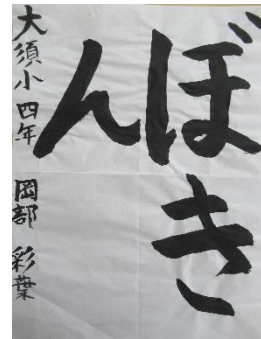 ぼき
ん
大須小四年 岡部 彩葉